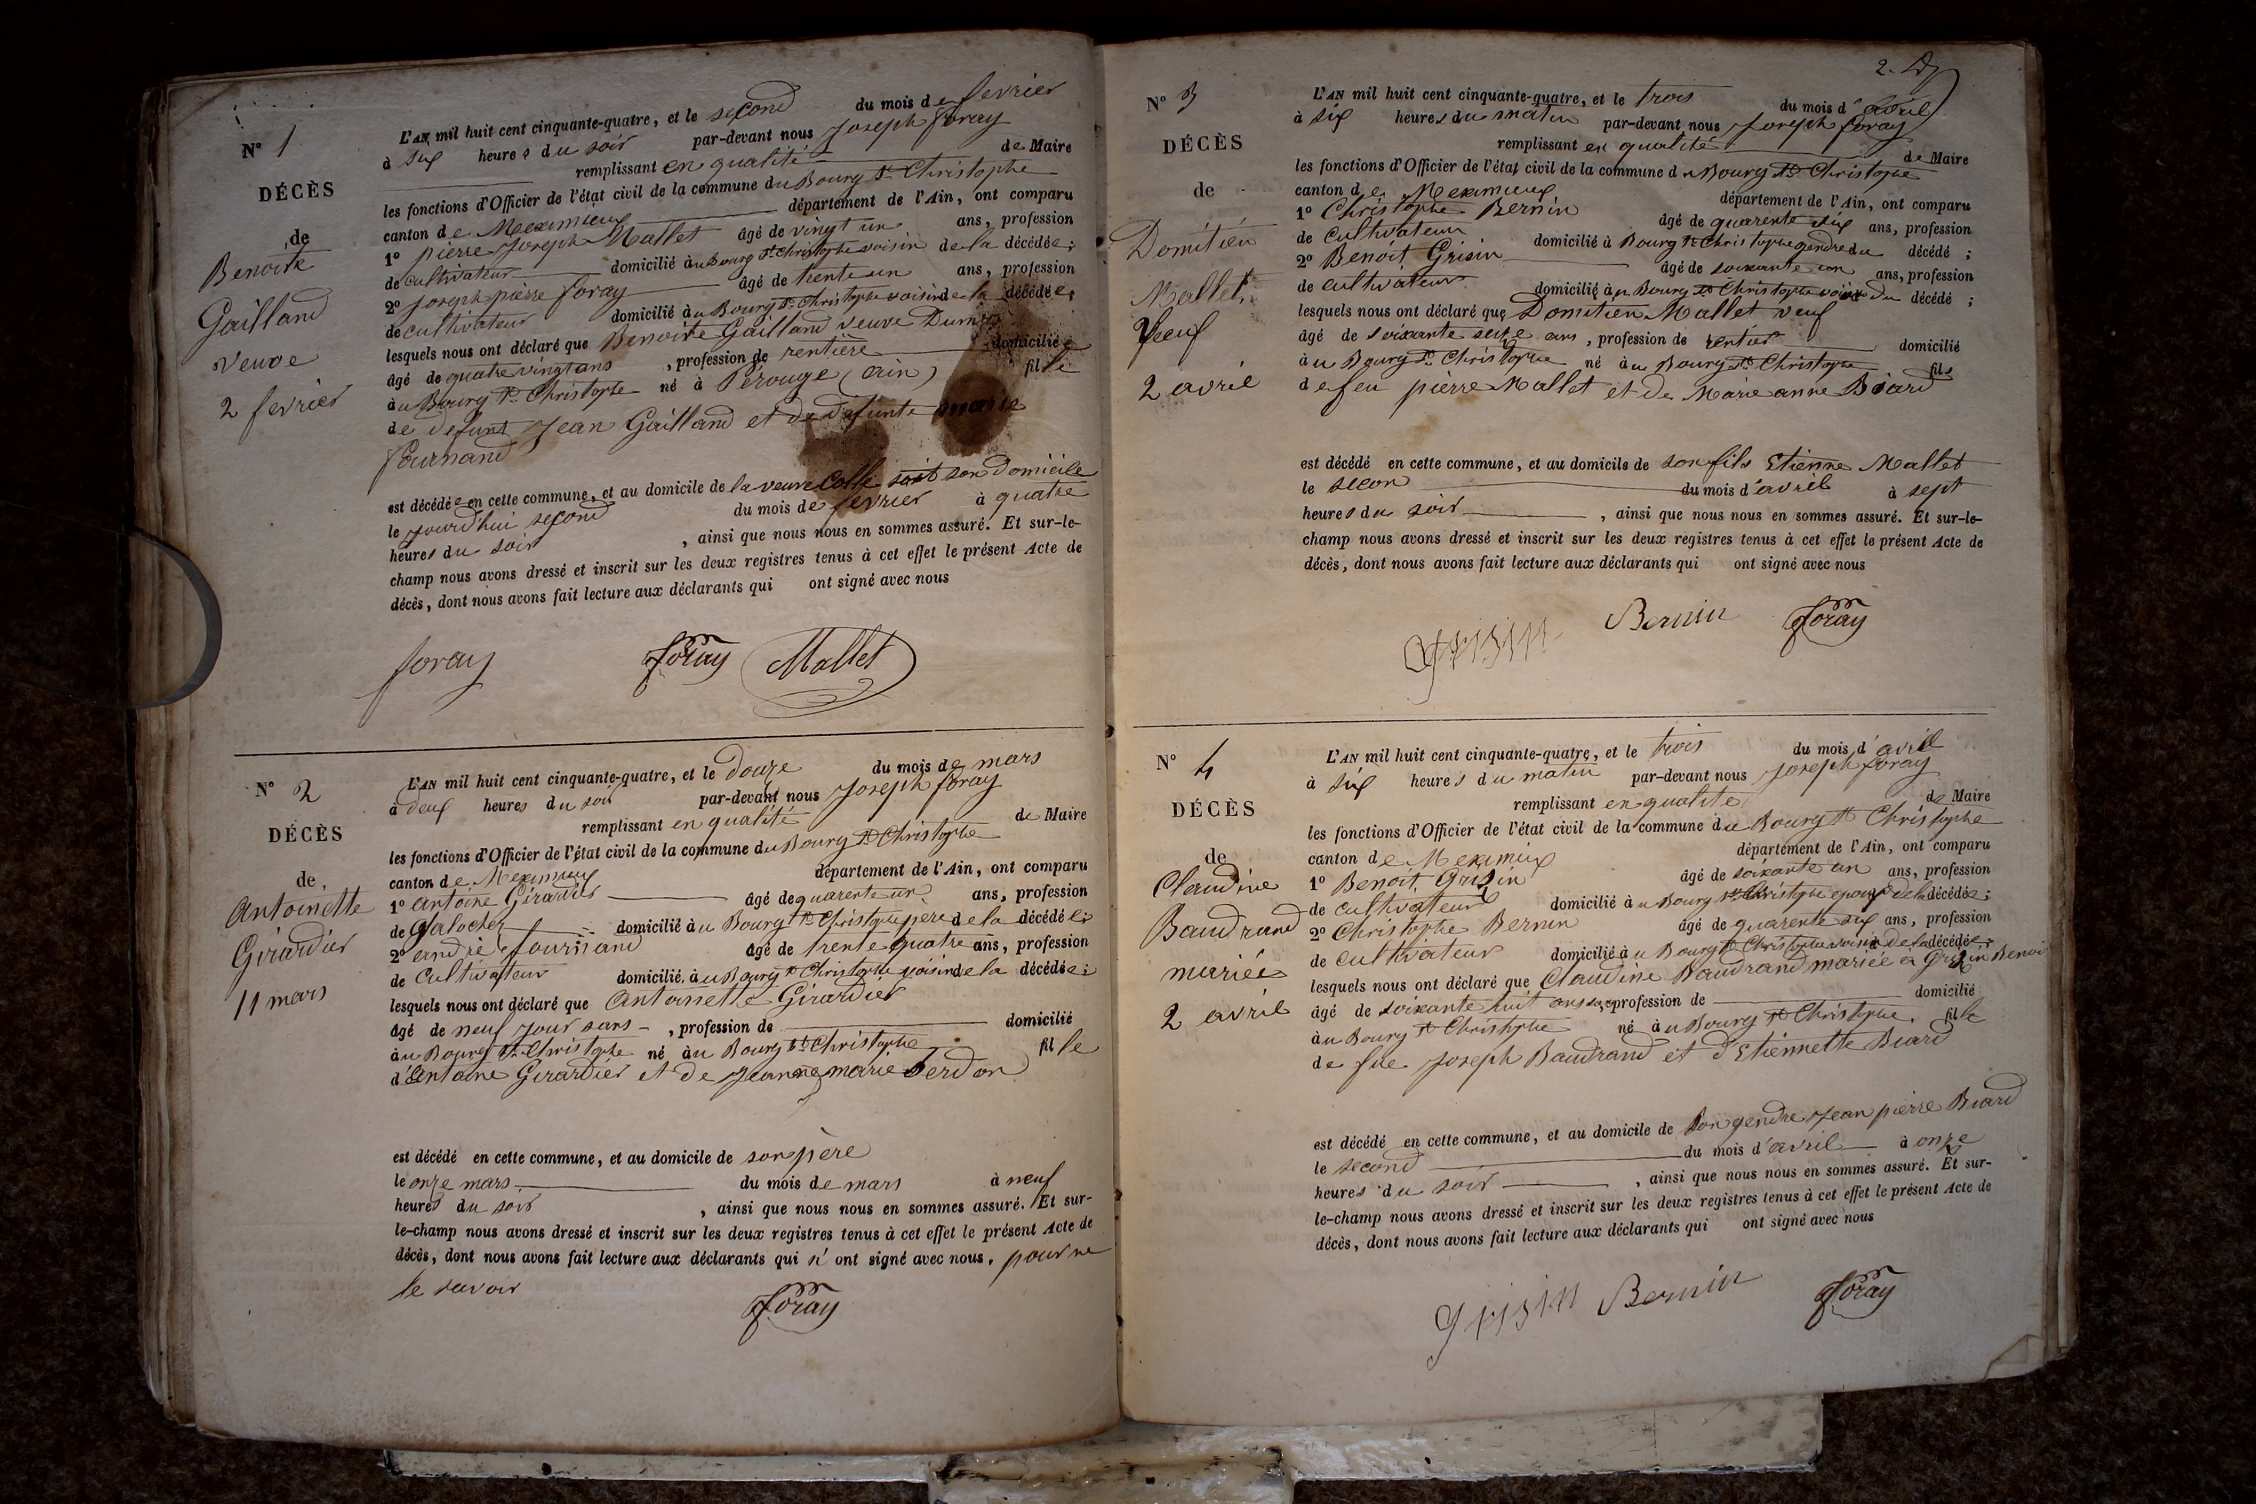 N° 1
DÉCÈS
de
Benoite
Gailland
veuve
2 fevrier
L'AN mil huit cent cinquante-quatre, et le second du mois de fevrier
à six heures du soir par-devant nous Joseph foray
remplissant en qualité de Maire
les fonctions d'Officier de l'état civil de la commune du Bourg St Christophe
canton de Meximieux département de l'Ain, ont comparu
1° pierre Joseph Mallet âgé de vingt un ans, profession
de cultivateur domicilié au Bourg St Christophe voisin de la décédée;
2° Joseph pierre foray âgé de trente un ans, profession
de cultivateur domicilié au Bourg St Christophe voisin de la décédée;
lesquels nous ont déclaré que Benoite Gailland veuve
âgé de quatre vingt ans, profession de rentière domiciliée
au Bourg St Christophe né à Pérouge (ain) fille
de defunt Jean Gailland et de defunte marie
fournand
est décédée en cette commune, et au domicile de la veuve Colle soit son domicile
le jourd'hui second du mois de fevrier à quatre
heures du soir, ainsi que nous nous en sommes assuré. Et sur-le-
champ nous avons dressé et inscrit sur les deux registres tenus à cet effet le présent Acte de
décès, dont nous avons fait lecture aux déclarants qui ont signé avec nous
foray foray Mallet
N° 2
DÉCÈS
de
Antoinette
Girardier
11 mars
L'AN mil huit cent cinquante-quatre, et le douze du mois de mars
à deux heures du soir par-devant nous Joseph foray
remplissant en qualité de Maire
les fonctions d'Officier de l'état civil de la commune du Bourg St Christophe
canton de Meximieux département de l'Ain, ont comparu
1° antoine Girardier âgé de quarente un ans, profession
de galocher domicilié au Bourg St Christophe père de la décédée;
2° andré fournand âgé de trente quatre ans, profession
de Cultivateur domicilié au Bourg St Christophe voisin de la décédée;
lesquels nous ont déclaré que antoinette Girardier
âgé de neuf jour sans, profession de domicilié
au Bourg St Christophe né au Bourg St Christophe fille
d'Antoine Girardier et de jeanne marie Berdon
est décédé en cette commune, et au domicile de son père
le onze mars du mois de mars à neuf
heures du soir, ainsi que nous nous en sommes assuré. Et sur-
le-champ nous avons dressé et inscrit sur les deux registres tenus à cet effet le présent Acte de
décès, dont nous avons fait lecture aux déclarants qui n'ont signé avec nous. pour ne
le savoir
foray
2.
N° 3
DÉCÈS
de
Domitien
Mallet,
Veuf
2 avril
L'AN mil huit cent cinquante-quatre, et le trois du mois d'avril
à six heures du matin par-devant nous Joseph foray
remplissant en qualité de Maire
les fonctions d'Officier de l'état civil de la commune du Bourg St Christophe
canton de Meximieux département de l'Ain, ont comparu
1° Christophe Bernin âgé de quarente six ans, profession
de cultivateur domicilié à Bourg St Christophe gendre du décédé;
2° Benoit Grisin âgé de soixante un ans, profession
de cultivateur domicilié au Bourg St Christophe voisin du décédé;
lesquels nous ont déclaré que Domitien Mallet veuf
âgé de soixante seize ans, profession de rentier domicilié
au Bourg St Christophe né au Bourg St Christophe fils
de feu pierre Mallet et de Marie anne Biard
est décédé en cette commune, et au domicile de son fils Etienne Mallet
le secon du mois d'avril à sept
heures du soir, ainsi que nous nous en sommes assuré. Et sur-le-
champ nous avons dressé et inscrit sur les deux registres tenus à cet effet le présent Acte de
décès, dont nous avons fait lecture aux déclarants qui ont signé avec nous
Grisin Bernin foray
N° 4
DÉCÈS
de
Claudine
Baudrand
mariée
2 avril
L'AN mil huit cent cinquante-quatre, et le trois du mois d'avril
à six heures du matin par-devant nous Joseph foray
remplissant en qualité de Maire
les fonctions d'Officier de l'état civil de la commune du Bourg St Christophe
canton de Meximieux département de l'Ain, ont comparu
1° Benoit Grisin âgé de soixante un ans, profession
de cultivateur domicilié au Bourg St Christophe epoux de la décédée;
2° Christophe Bernin âgé de quarente six ans, profession
de cultivateur domicilié au Bourg St Christophe voisin de la décédée;
lesquels nous ont déclaré que Claudine Baudrand mariée a Grisin Benoi
âgé de soixante huit ans, profession de domicilié
au Bourg St Christophe né au Bourg St Christophe fille
de fue Joseph Baudrand et d'Etiennette Biard
est décédé en cette commune, et au domicile de son gendre Jean pierre Biard
le second du mois d'avril à onze
heures du soir, ainsi que nous nous en sommes assuré. Et sur-
le-champ nous avons dressé et inscrit sur les deux registres tenus à cet effet le présent Acte de
décès, dont nous avons fait lecture aux déclarants qui ont signé avec nous
Grisin Bernin foray